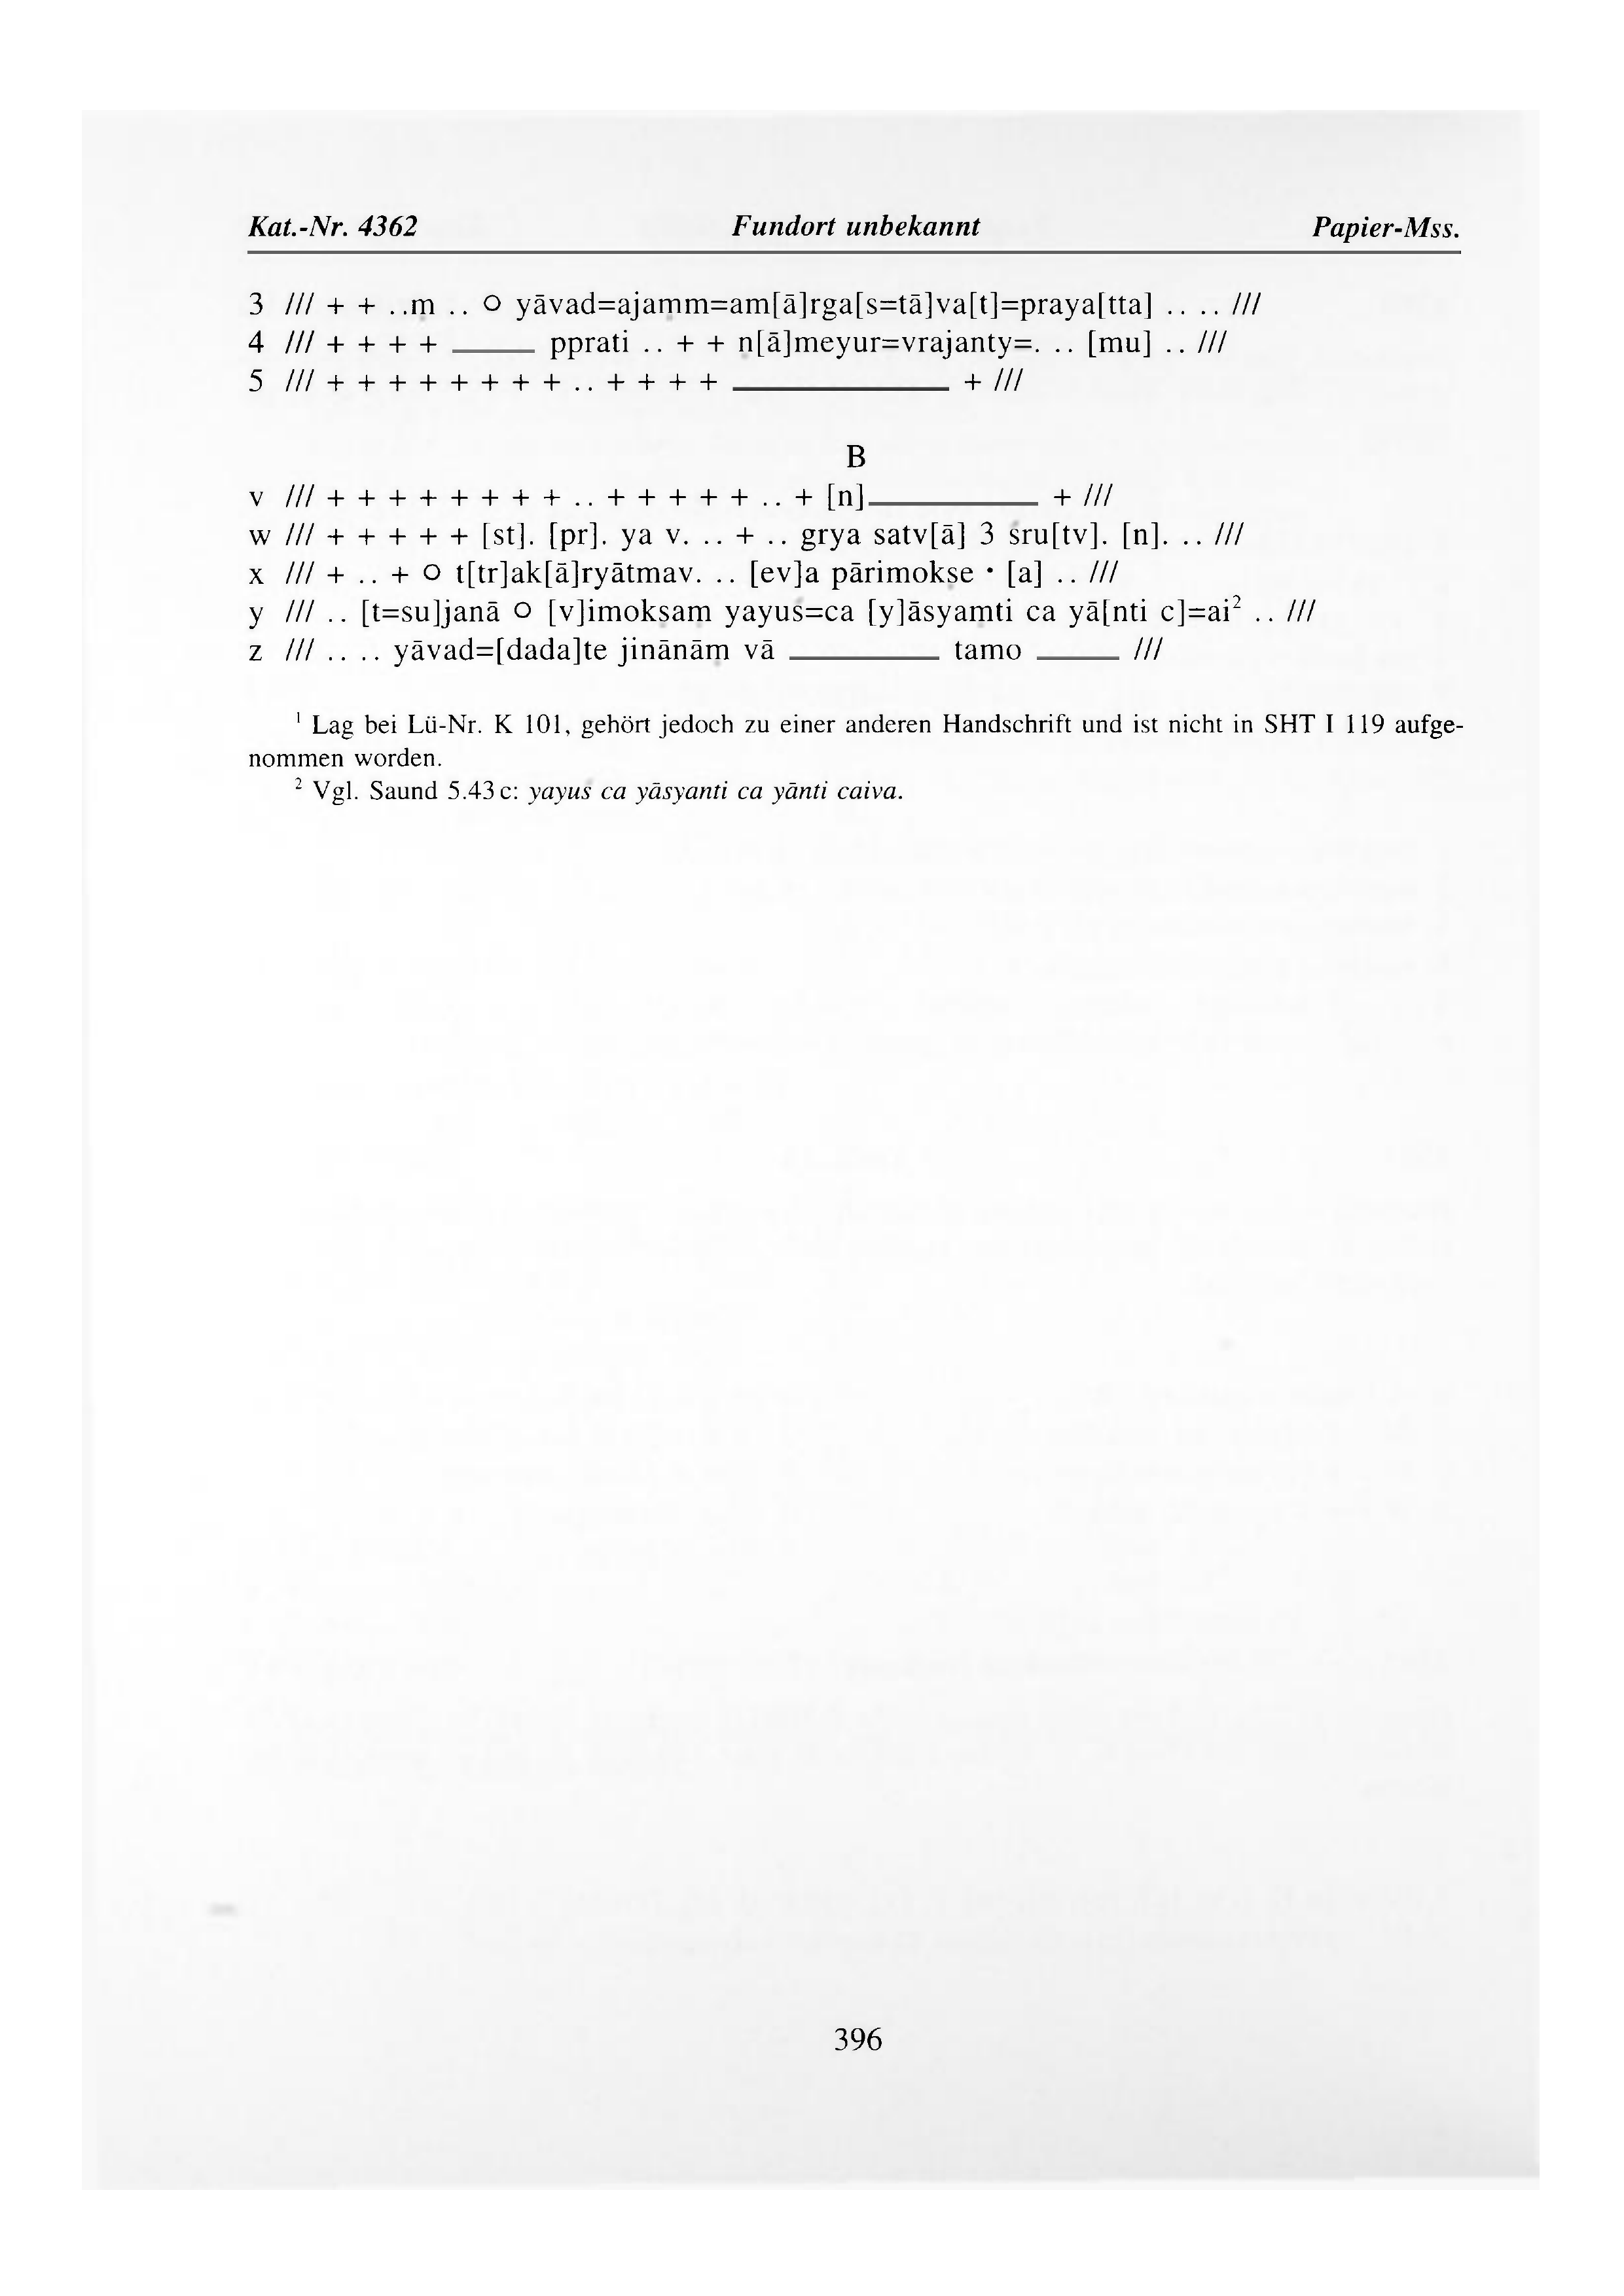 Kat.-Nr. 4362 Fundort unbekannt Papier-Mss.
3 /// + + ..ṃ .. ○ yāvad=ajaṃm=am[ā]rga[s=tā]va[t]=praya[tta] .. .. ///
4 /// + + + + _____ pprati .. + + ṇ[ā]meyur=vrajanty=. .. [mu] .. ///
5 /// + + + + + + + + .. + + + + _____________ + ///
B
v /// + + + + + + + + .. + + + + + .. + [n]__________ + ///
w /// + + + + + [st]. [pr]. ya v. .. + .. grya satv[ā] 3 śru[tv]. [n]. .. ///
x /// + .. + ○ t[tr]ak[ā]ryātmav. .. [ev]a pārimokṣe • [a] .. ///
y /// .. [t=su]janā ○ [v]imokṣaṃ yayuś=ca [y]āsyaṃti ca yā[nti c]=ai² .. ///
z /// .. .. yāvad=[dada]te jinānāṃ vā _________ tamo _____ ///
¹ Lag bei Lü-Nr. K 101, gehört jedoch zu einer anderen Handschrift und ist nicht in SHT I 119 aufge-
nommen worden.
² Vgl. Saund 5.43 c: yayuś ca yāsyanti ca yānti caiva.
396